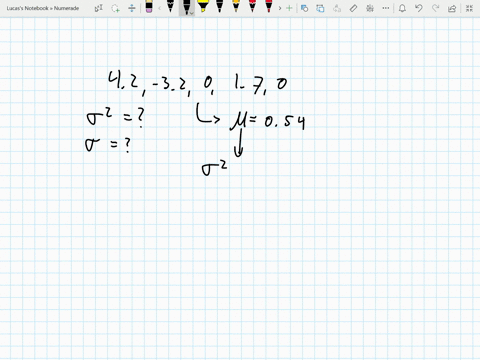 Lucas's Notebook » Numerade
4.2, -3.2, 0, 1.7, 0
σ² = ?
↳ μ = 0.54
σ = ?
↓
σ²